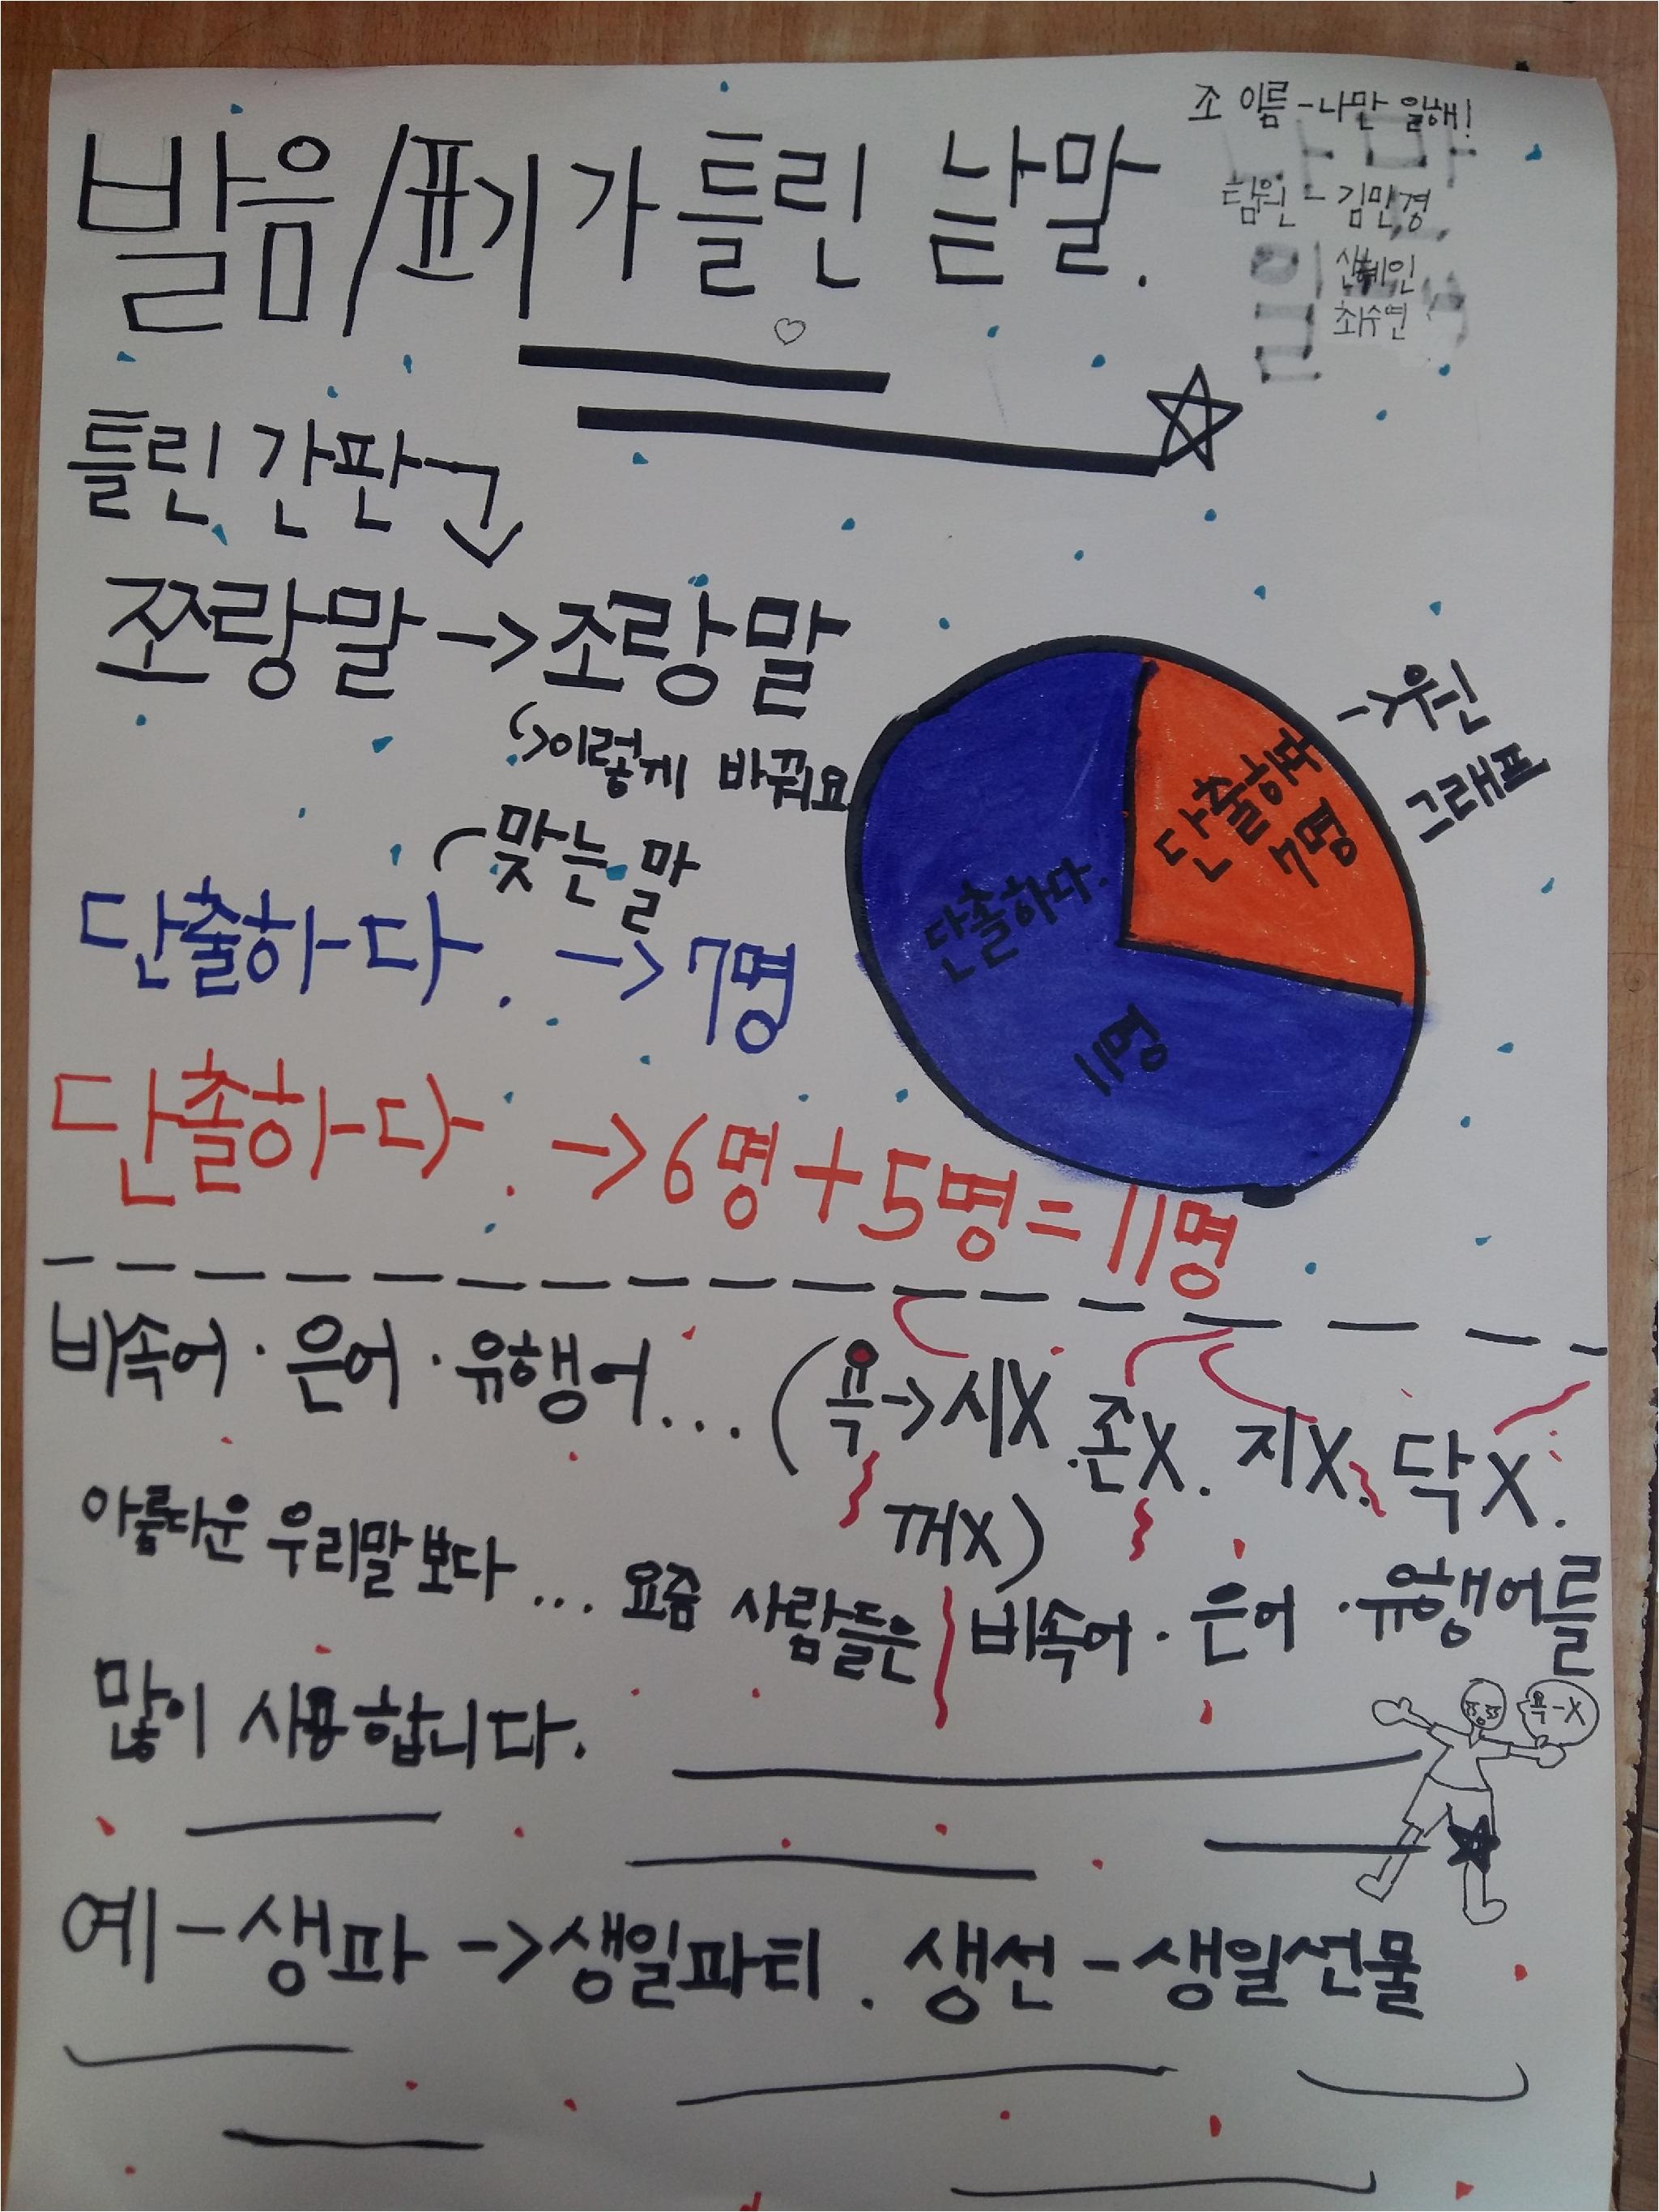 조 이름 - 나만 일해!
팀원 - 김민경
신혜인
최수연
발음/표기가 틀린 낱말.
틀린 간판
쪼랑말 -> 조랑말
이렇게 바꿔요
맞는 말
단출하다. -> 7명
단촐하다. -> 6명 + 5명 = 11명
원
그래프
단출하다
7명
단촐하다.
11명
비속어 · 은어 · 유행어... (욕 -> 시X. 존X. 지X. 닥X.
꺼X)
아름다운 우리말보다... 요즘 사람들은 비속어 · 은어 · 유행어를
많이 사용합니다.
욕-X
예 - 생파 -> 생일파티. 생선 - 생일선물